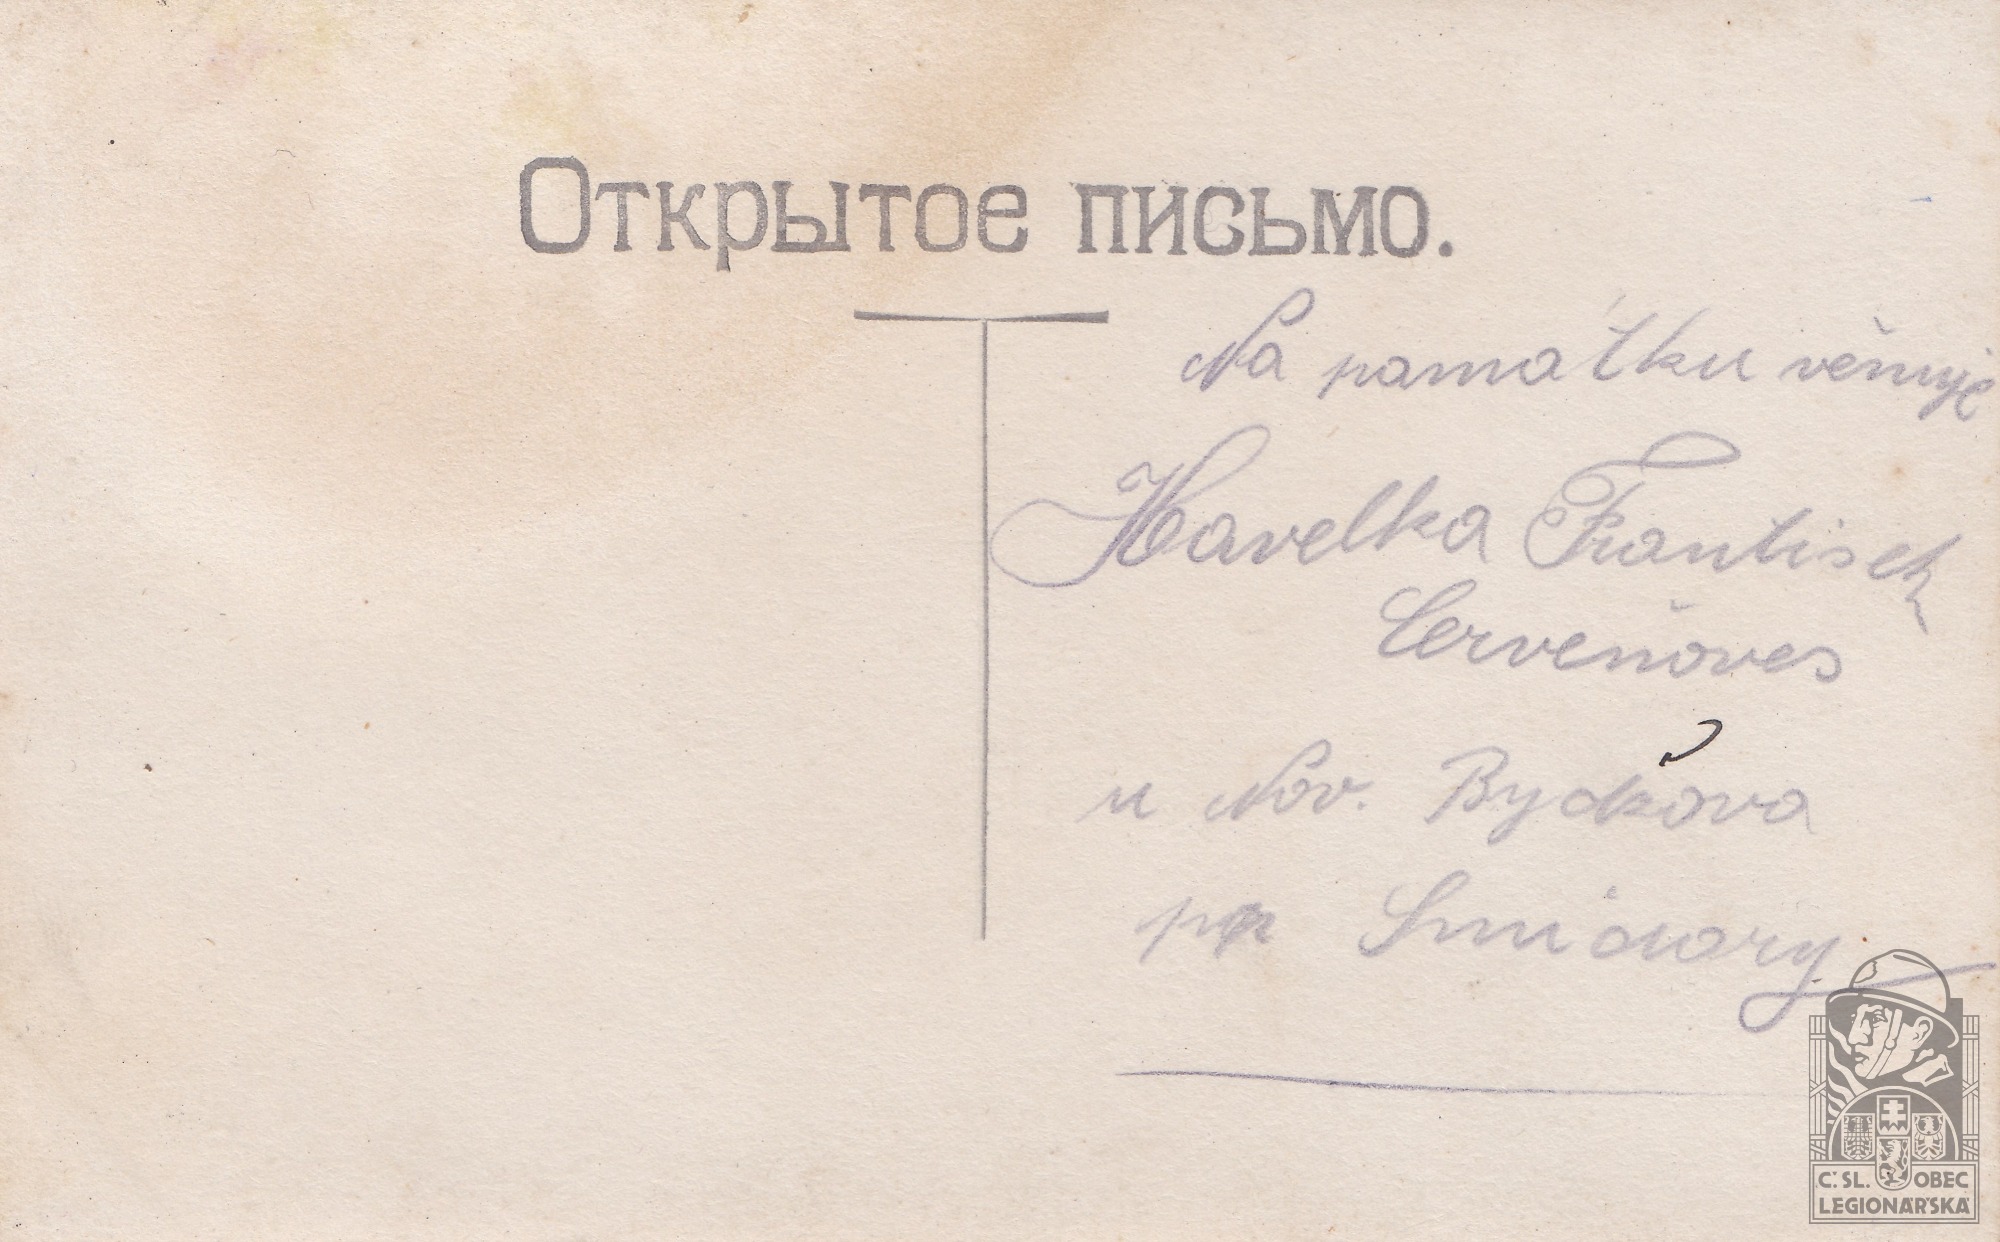 Открытое письмо.
Na památku věnuje
Havelka Frantisek
Červenoves
u Nov. Bydžova
pp Smidary
Č. SL. OBEC
LEGIONÁŘSKÁ